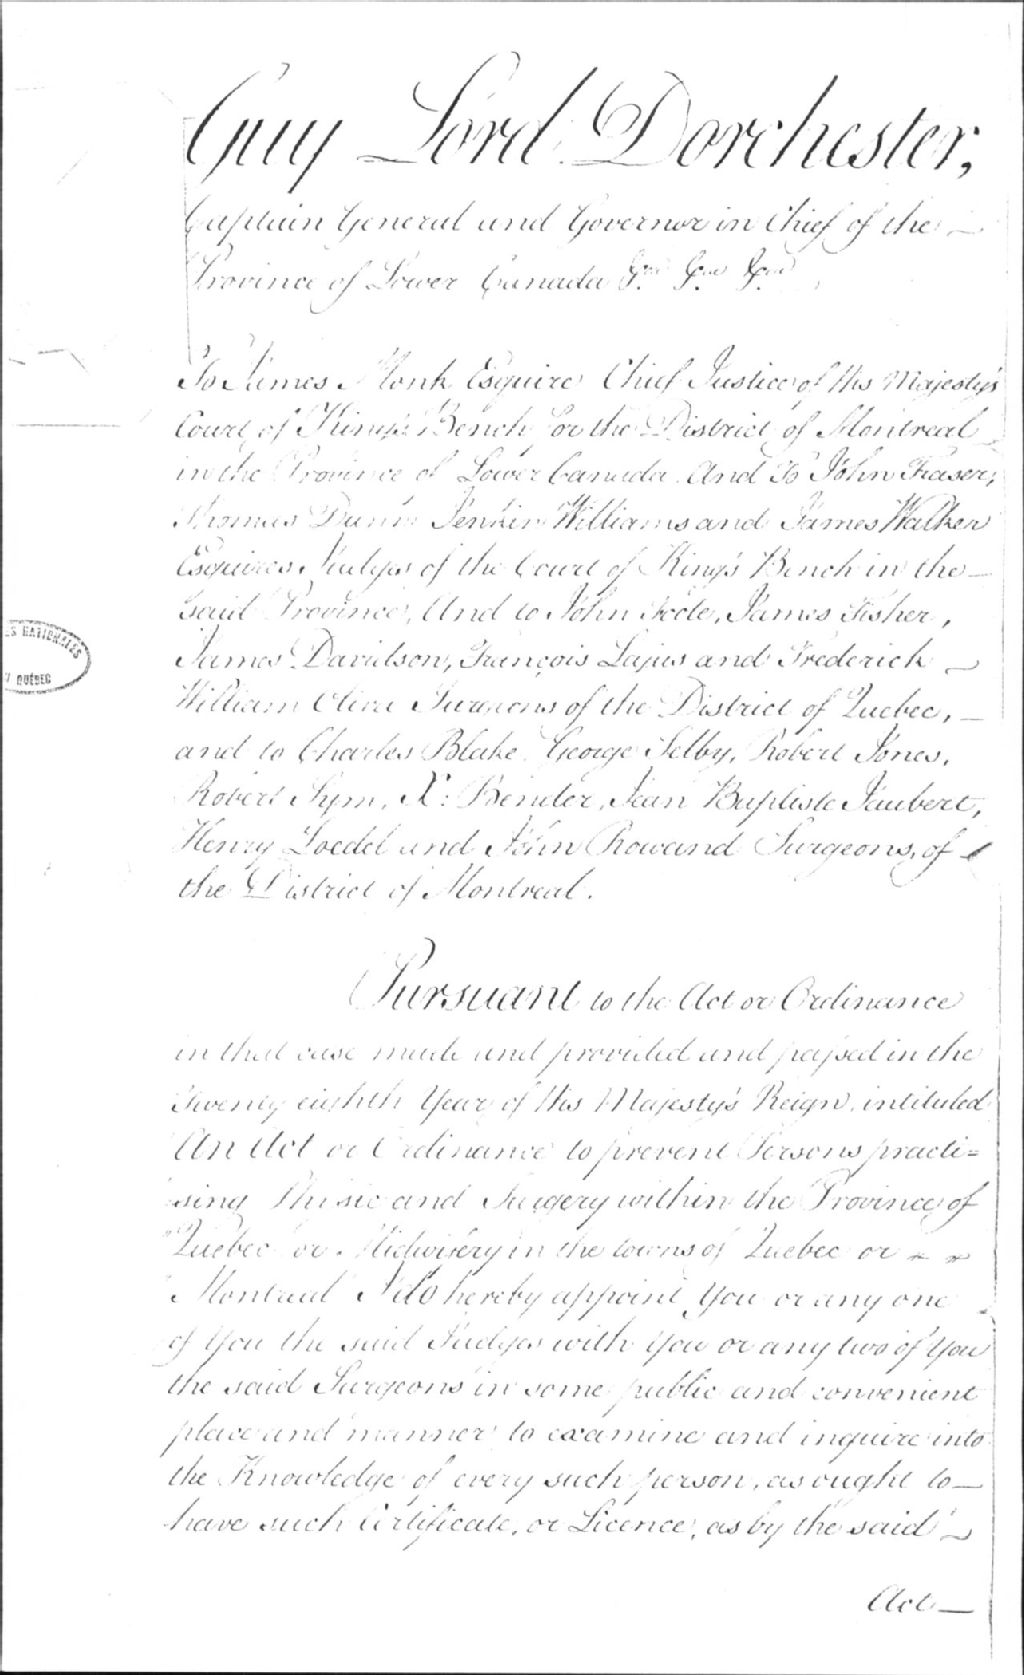 Guy Lord Dorchester,
Captain General and Governor in Chief of the
Province of Lower Canada &ca &ca &ca
To James Monk Esquire Chief Justice of His Majesty's
Court of King's Bench for the District of Montreal
in the Province of Lower Canada. And To John Fraser,
Thomas Dunn Jenkin Williams and James Walker
Esquires Judges of the Court of King's Bench in the
said Province, And to John Foote, James Fisher,
James Davidson, François Lajus and Frederick
ES NATIONALES
QUÉBEC
William Oliva Surgeons of the District of Quebec,
and to Charles Blake, George Selby, Robert Jones,
Robert Sym, X: Bender, Jean Baptiste Jaubert,
Henry Loedel and John Rowand Surgeons, of
the District of Montreal.
Pursuant to the Act or Ordinance
in that case made and provided and passed in the
Twenty eighth Year of His Majesty's Reign, intituled
"An Act or Ordinance to prevent Persons practi=
"sing Phisic and Surgery within the Province of
"Quebec or Midwifery in the towns of Quebec or
"Montreal" I do hereby appoint You or any one
of You the said Judges with You or any two of You
the said Surgeons in some public and convenient
place and manner to examine and inquire into
the Knowledge of every such person, as ought to
have such Certificate, or Licence, as by the said
Act